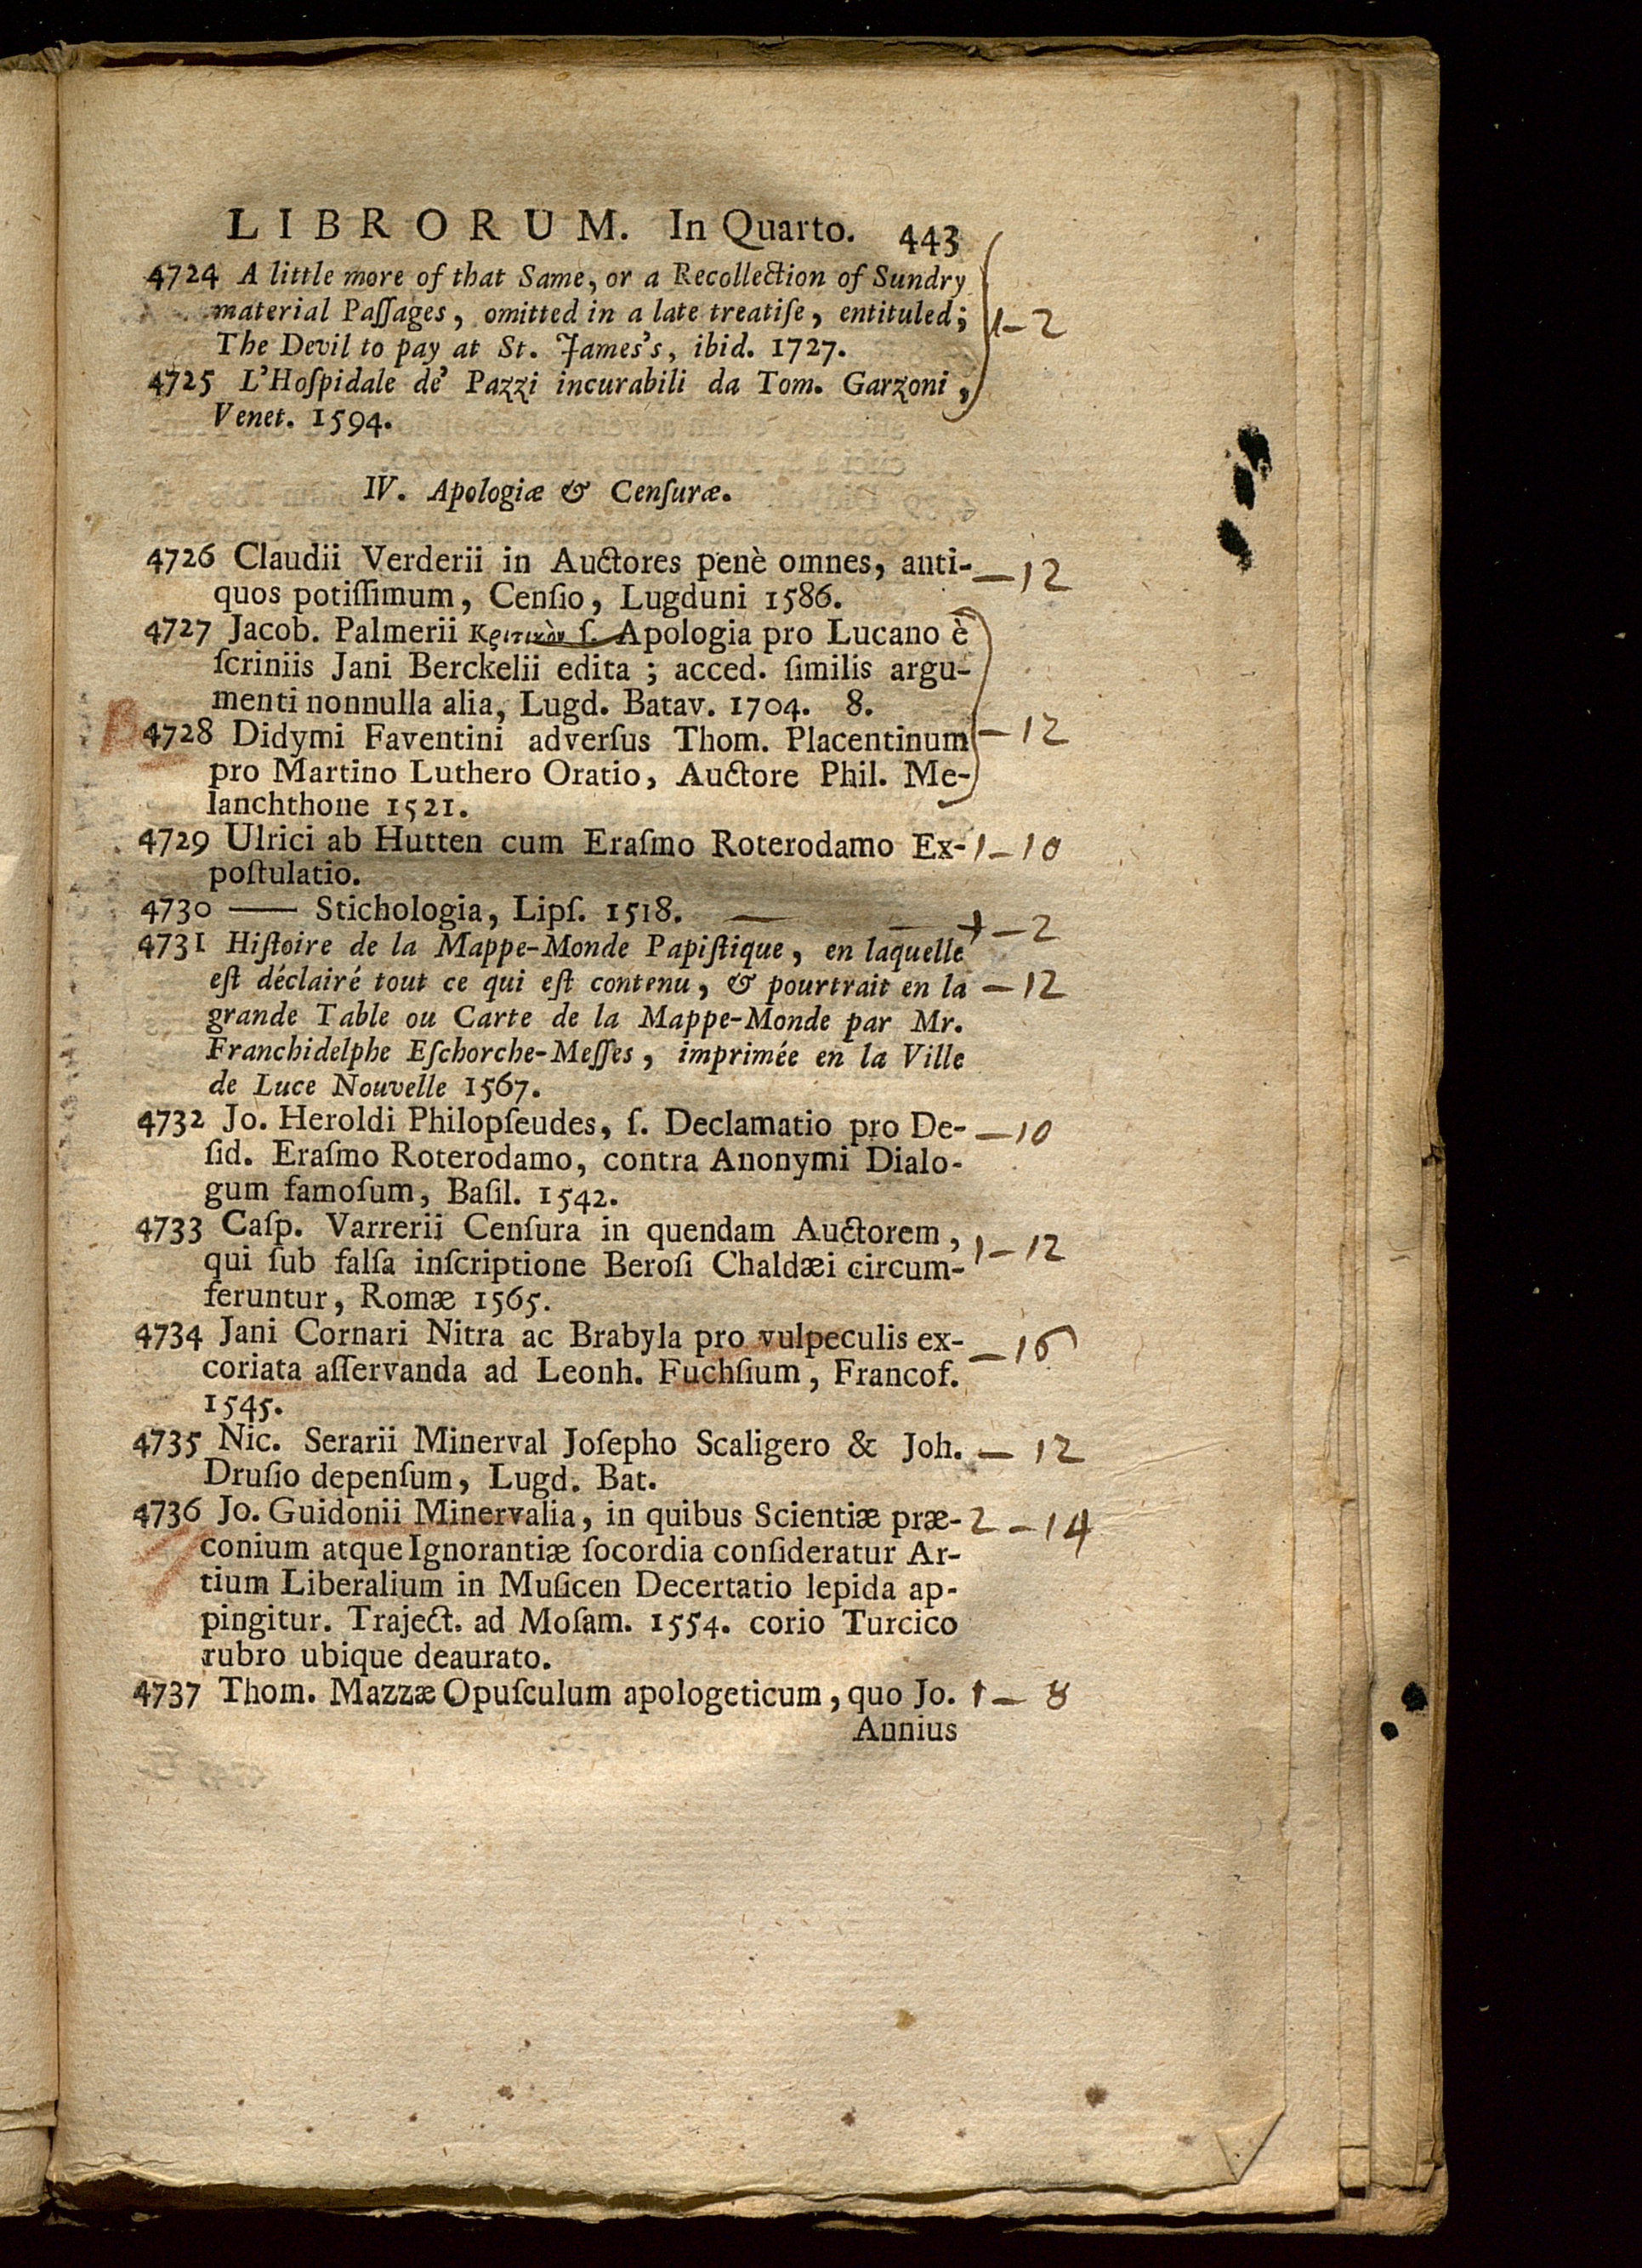 LIBRORUM. In Quarto. 443
4724 A little more of that Same, or a Recollection of Sundry
material Paſſages, omitted in a late treatiſe, entituled;
The Devil to pay at St. James's, ibid. 1727.
1-2
4725 L'Hoſpidale de' Pazzi incurabili da Tom. Garzoni,
Venet. 1594.
IV. Apologiæ & Cenſuræ.
4726 Claudii Verderii in Auctores penè omnes, anti- —12
quos potiſſimum, Cenſio, Lugduni 1586.
4727 Jacob. Palmerii Κριτικὸν ſ. Apologia pro Lucano è
ſcriniis Jani Berckelii edita; acced. ſimilis argu-
menti nonnulla alia, Lugd. Batav. 1704. 8.
4728 Didymi Faventini adverſus Thom. Placentinum —12
pro Martino Luthero Oratio, Auctore Phil. Me-
lanchthone 1521.
4729 Ulrici ab Hutten cum Eraſmo Roterodamo Ex- 1-10
poſtulatio.
4730 —— Stichologia, Lipſ. 1518. —2
4731 Hiſtoire de la Mappe-Monde Papiſtique, en laquelle
eſt déclairé tout ce qui eſt contenu, & pourtrait en la —12
grande Table ou Carte de la Mappe-Monde par Mr.
Franchidelphe Eſchorche-Meſſes, imprimée en la Ville
de Luce Nouvelle 1567.
4732 Jo. Heroldi Philopſeudes, ſ. Declamatio pro De- —10
ſid. Eraſmo Roterodamo, contra Anonymi Dialo-
gum famoſum, Baſil. 1542.
4733 Caſp. Varrerii Cenſura in quendam Auctorem, 1-12
qui ſub falſa inſcriptione Beroſi Chaldæi circum-
feruntur, Romæ 1565.
4734 Jani Cornari Nitra ac Brabyla pro vulpeculis ex-
coriata aſſervanda ad Leonh. Fuchſium, Francof. —16
1545.
4735 Nic. Serarii Minerval Joſepho Scaligero & Joh. —12
Druſio depenſum, Lugd. Bat.
4736 Jo. Guidonii Minervalia, in quibus Scientiæ præ- 2-14
conium atque Ignorantiæ ſocordia conſideratur Ar-
tium Liberalium in Muſicen Decertatio lepida ap-
pingitur. Traject. ad Moſam. 1554. corio Turcico
rubro ubique deaurato.
4737 Thom. Mazzæ Opuſculum apologeticum, quo Jo. 1-8
Annius